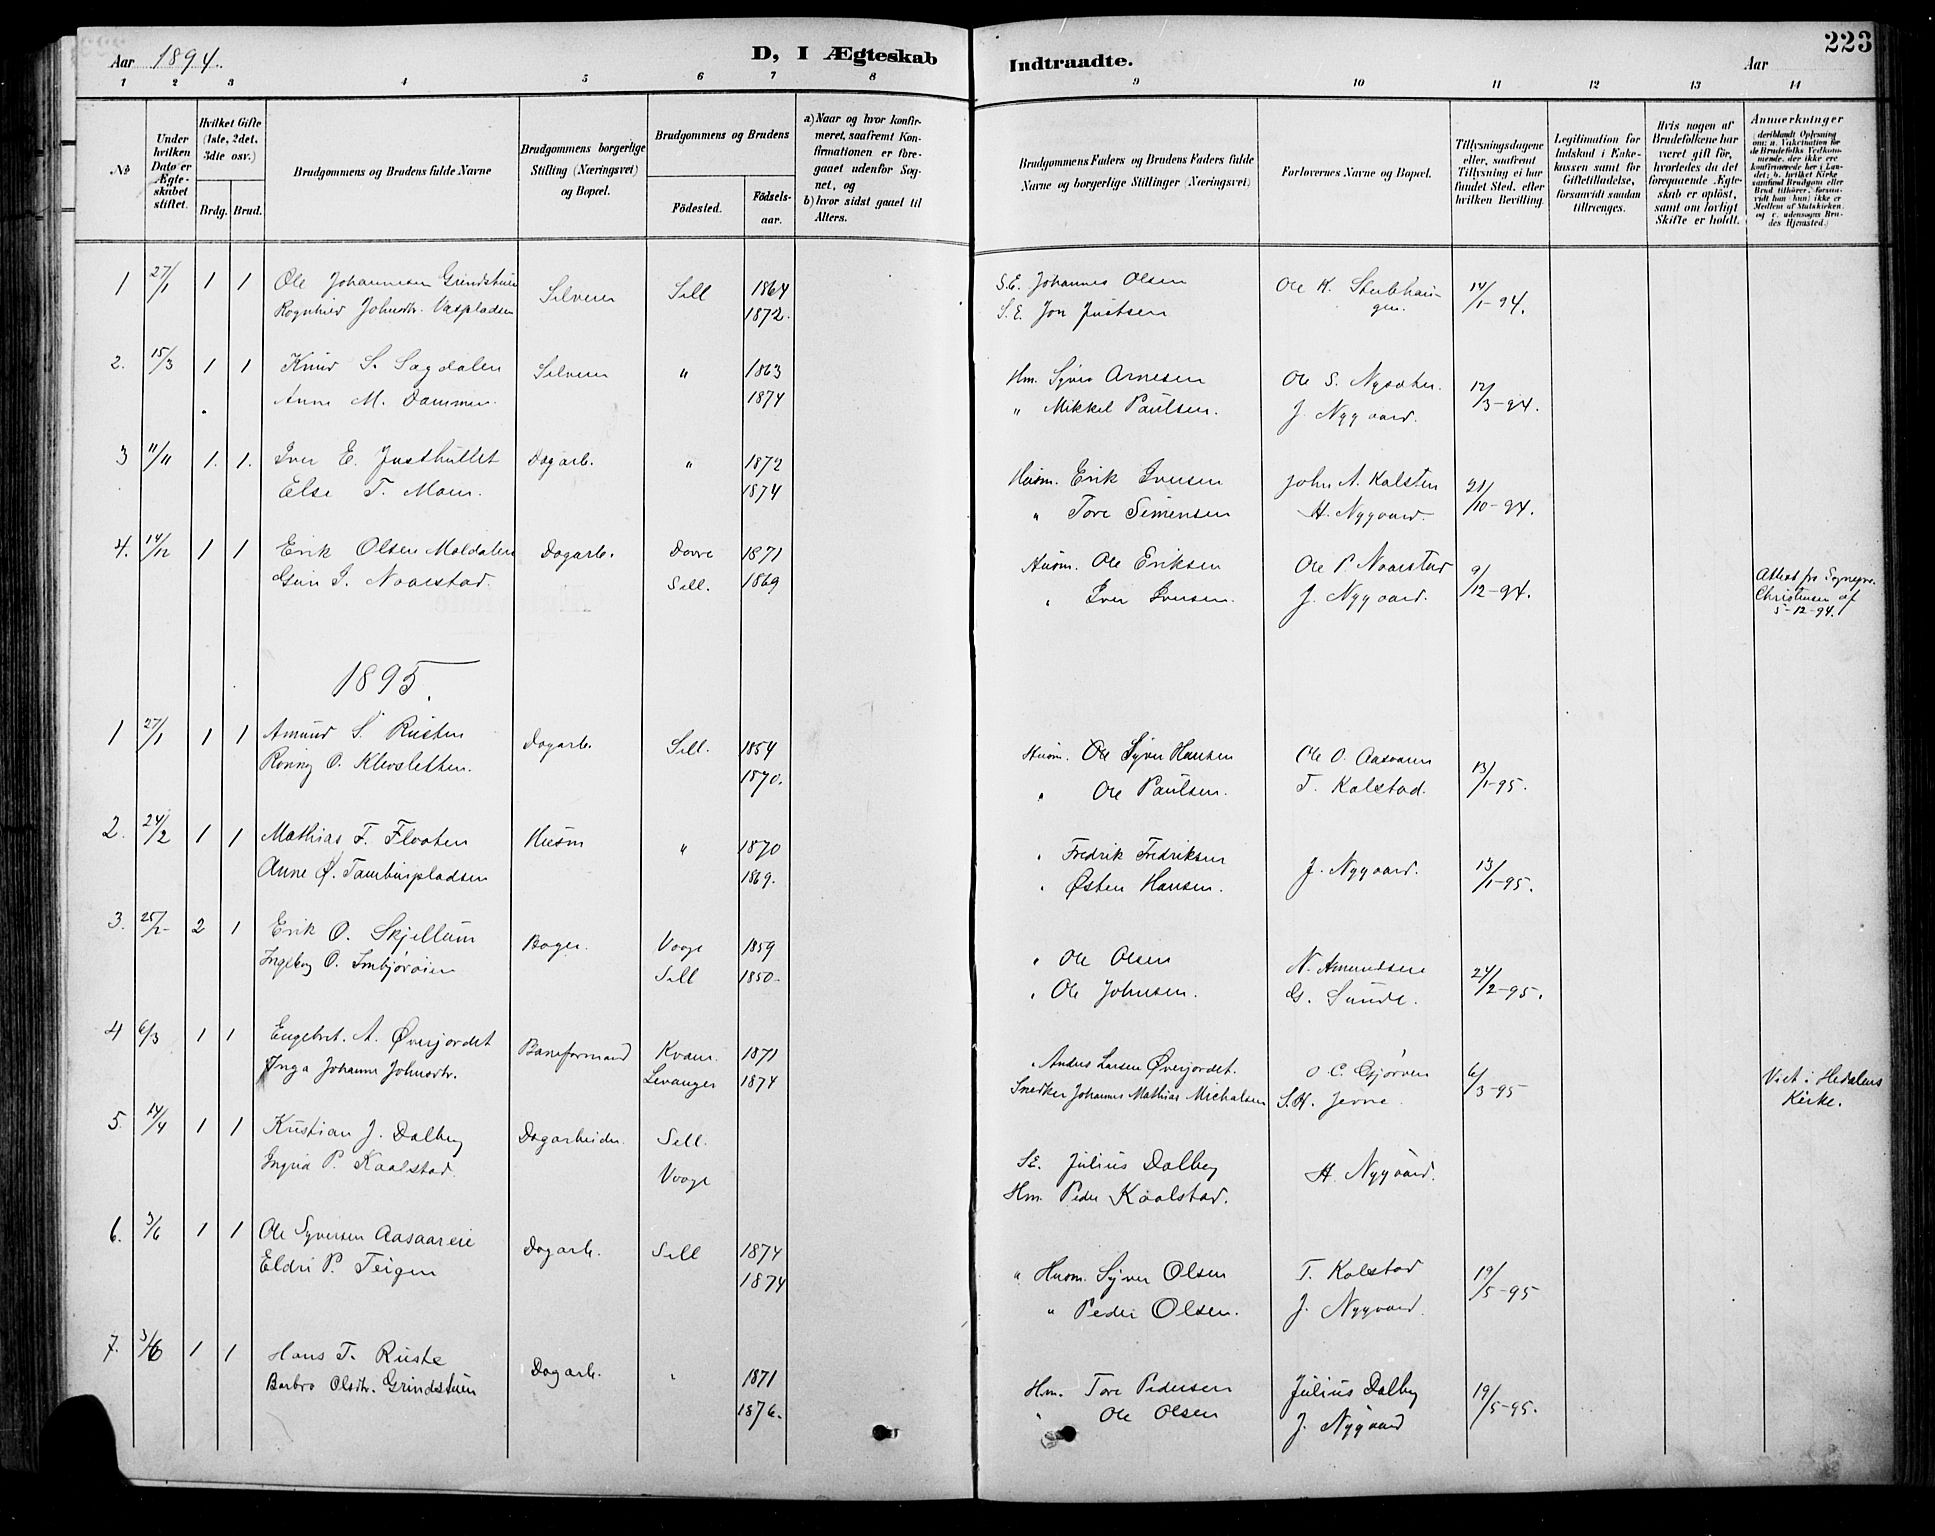 223
Aar 1894.
D, I Ægteskab Indtraadte.
Aar
1 2 3 4 5 6 7 8 9 10 11 12 13 14
No.
Under hvilken Dato er Ægteskabet stiftet.
Hvilket Gifte (1ste, 2det, 3die osv.)
Brdg. Brud.
Brudgommens og Brudens fulde Navne
Brudgommens borgerlige Stilling (Næringsvei) og Bopæl.
Brudgommens og Brudens
Fødested.
Fødselsaar.
a) Naar og hvor konfirmeret, saafremt Konfirmationen er foregaaet udenfor Sognet, og
b) hvor sidst gaaet til Alters.
Brudgommens Faders og Brudens Faders fulde Navne og borgerlige Stillinger (Næringsvei)
Forlovernes Navne og Bopæl.
Tillysningsdagene eller, saafremt Tillysning ei har fundet Sted, efter hvilken Bevilling.
Legitimation for Indskud i Enkekassen samt for Giftetilladelse, forsaavidt saadan tiltrænges.
Hvis nogen af Brudefolkene har været gift før, hvorledes da det foregaaende Ægteskab er opløst, samt om lovligt Skifte er holdt.
Anmærkninger (deriblandt Oplysning om: a. Vakcination for de Brudefolks Vedkommende, der ikke ere konfirmerede her i Landet; b. hvilket Kirkesamfund Brudgom eller Brud tilhører, forsaavidt han (hun) ikke er Medlem af Statskirken, og c. udensogns Brudes Hjemsted.)
1 27/1 1 1 Ole Johannesen Grindstuen Selveier Sell 1864 S.E. Johannes Olsen Ole K. Stubhaugen. 14/1-94.
Rognhild Johnsdtr. Vaspladsen 1872. S.E. Jon Justsen
2. 15/3 1 1 Knud S. Sagdalen Selveier " 1863 Hm. Syver Arnesen Ole S. 12/3-94.
Anne M. Dammen. 1874 " Mikkel Paulsen. J. Nygaard.
3 11/11 1. 1. Iver E. Justhullet Dagarb. " 1872 Husm. Erik Iversen John A. Kalsten 21/10-94.
Else T. Moen. 1874 " Tore Simensen H. Nygaard.
4. 14/12 1 1 Erik Olsen Moldalen Dagarb. Dovre 1871 Husm. Ole Eriksen Ole P. Naarstad 9/12-94. Attest fra Sognepr. Christensen af 5-12-94.
Guri I. Naarstad. Sell. 1869 " Iver Iversen. J. Nygaard.
1895.
1 27/1 1 1 Amund S. Rusten Dagarb. Sell. 1854 Husm. Syver Hansen Ole O. Aasaaren 13/1-95.
Rønnog O. Klevsletten. 1870. " Ole Paulsen. T. Kalstad.
2. 24/2 1 1 Mathias F. Flaaten Husm " 1870 " Fredrik Fredriksen J. Nygaard. 13/1-95.
Anne Ø. Tamburpladsen 1869. " Østen Hansen.
3. 25/2 2 1 Erik O. Skjellum Bager. Vaage 1859 " Ole Olsen N. Amundsen 24/2-95.
Ingebog O. Smbjørøien Sell 1850. " Ole Johnsen. G. Sunde.
4 6/3 1 1 Engebret. A. Øverjordet Baneformand Kvam. 1871 " Anders Larsen Øverjordet. O. C. Gjørven 6/3-95 Viet i Hedalens Kirke.
Inga Johanne Johnsdtr. Levanger 1874 Snedker Johannes Mathias Michalsen S.H. Jerve.
5. 14/4 1 1 Kristian J. Dalbeg Dagarbeider. Sell. SE. Julius Dalbeg H. Nygaard.
Ingrid P. Kaalstad. Vaage Hm. Peder Kaalstad.
6. 3/6 1 1 Ole Syversen Aasaareie Dagarb. Sell 1874 " Husm. Syver Olsen T. Kalstad 19/5-95
Eldri P. Teigen 1874 " Peder Olsen. J. Nygaard.
7. 3/6 1 1 Hans T. Ruste Dagarb. " 1871 Hm. Tore Pedersen Julius Dalbeg 19/5-95.
Barbro Olsdtr. Grindstuen 1876. " Ole Olsen J. Nygaard